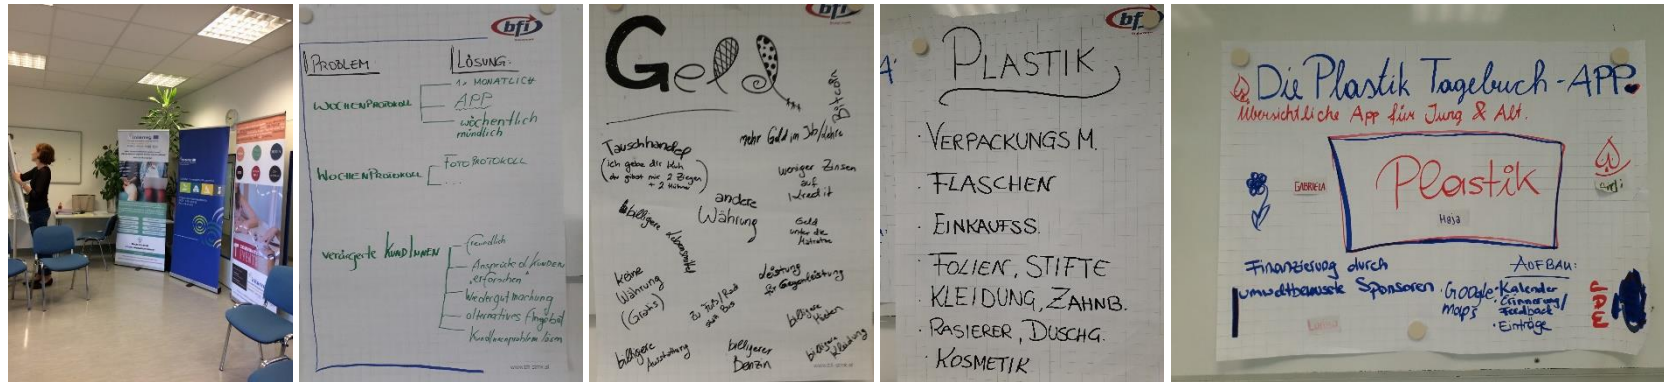 bfi
PROBLEM
LÖSUNG:
1x MONATLICH
WOCHENPROTOKOLL
APP
wöchentlich
mündlich
WOCHENPROTOKOLL
FOTOPROTOKOLL
....
verärgerte KundInnen
freundlich
Ansprüche d. Kunden
erforschen
Wiedergutmachung
alternatives Angebot
KundInnenproblem lösen
bfi
Geld
Bitcoin
Tauschhandel
(ich gebe dir Kuh
du gibst mir 2 Ziegen
+ 2 Hühner)
mehr Geld im Job/Lehre
weniger Zinsen
auf
Kredit
andere
Währung
Geld
unter die
Matratze
billigere Lebensmittel
keine
Währung
(Gratis)
zu Fuß/Rad
zum Bus
Leistung
für Gegenleistung
billigere
Mieten
billigere
Ausstattung
billigerer
Benzin
billigere
Kleidung
bfi
PLASTIK
· VERPACKUNGSM.
· FLASCHEN
· EINKAUFSS.
· FOLIEN, STIFTE
· KLEIDUNG, ZAHNB.
· RASIERER, DUSCHG.
· KOSMETIK
Die Plastik Tagebuch-APP
Übersichtliche App für Jung & Alt.
Plastik
GABRIELA
Finanzierung durch
umweltbewusste Sponsoren
AUFBAU:
· Google
Maps
· Kalender
· Erinnerung/
Feedback
· Einträge